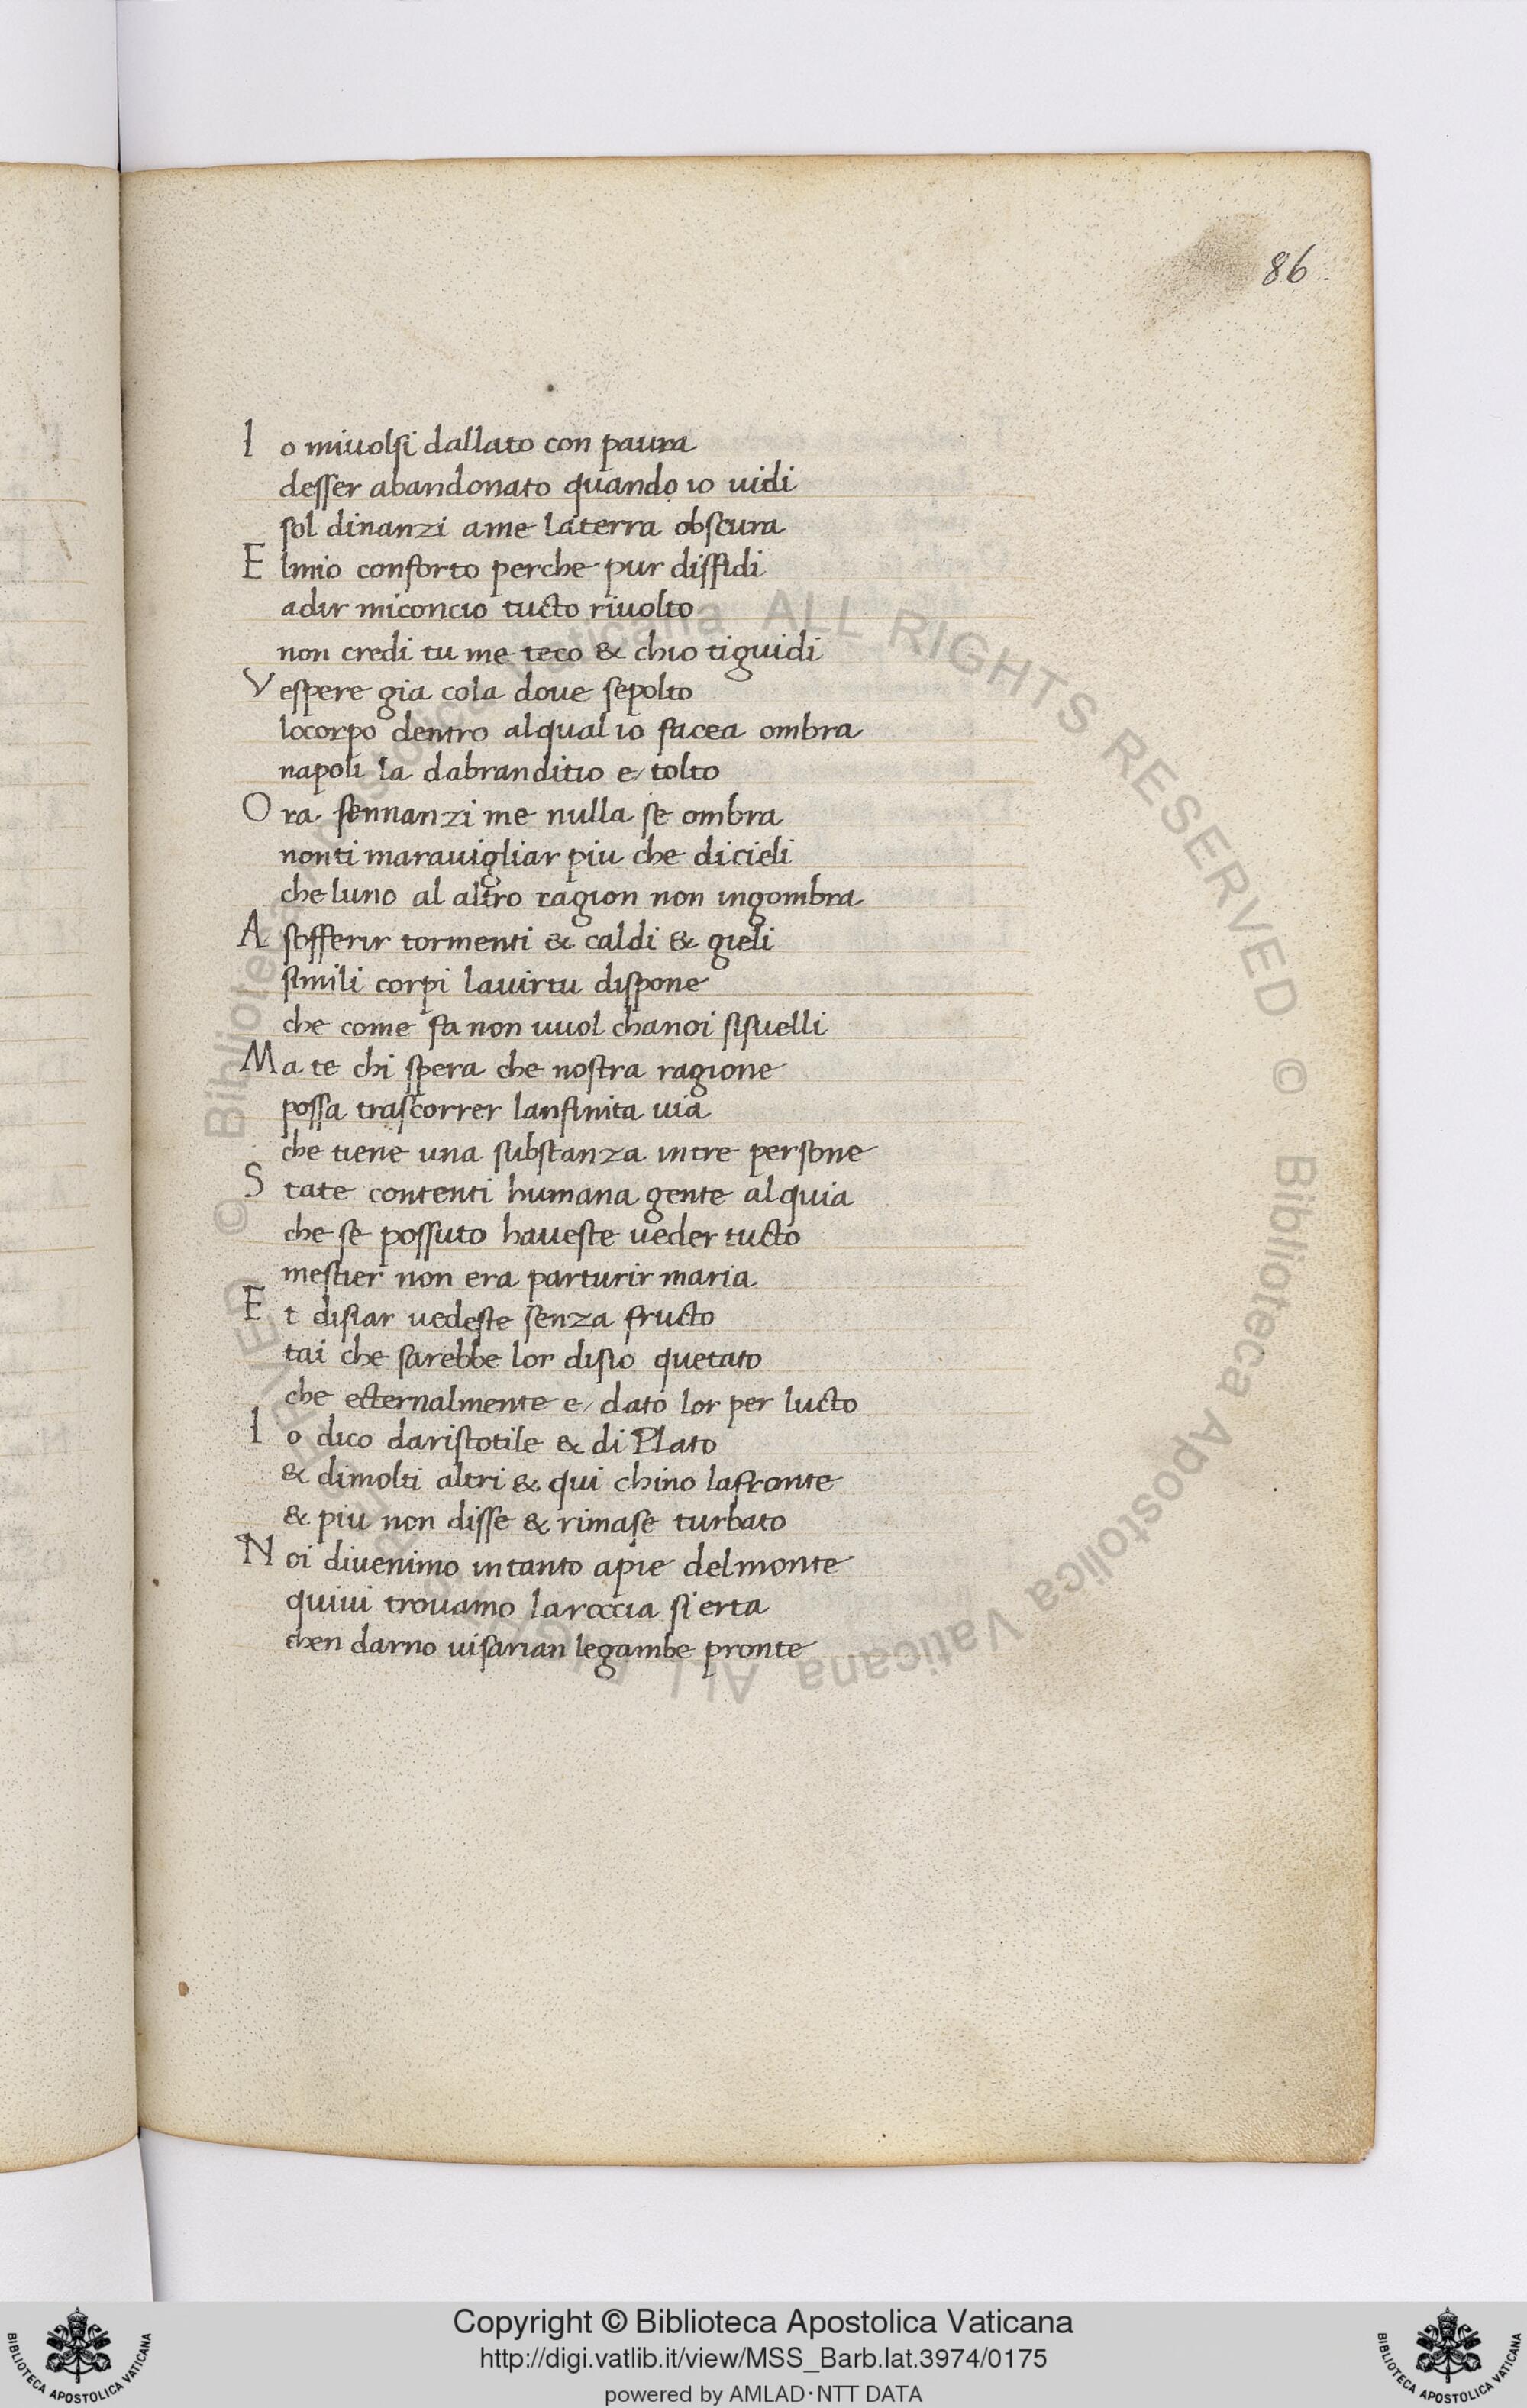 86
Io mivolsi dallato con paura
desser abandonato quando io uidi
sol dinanzi ame laterra obscura
Elmio conforto perche pur diffidi
adir miconcio tucto riuolto
non credi tu me teco & chio tiguidi
Vespere gia cola doue sepolto
locorpo dentro alqual io facea ombra
napoli la dabranditio e/ tolto
Ora sennanzi me nulla se ombra
nonti marauigliar piu che dicieli
che luno al altro ragion non ingombra
A sofferir tormenti & caldi & gieli
simili corpi lauirtu dispone
che come fa non uuol chanoi sisuelli
Mate chi spera che nostra ragione
possa trascorrer lanfinita uia
che tiene una substanza intre persone
State contenti humana gente alquia
che se possuto haueste ueder tucto
mestier non era parturir maria
Et disiar uedeste senza fructo
tai che sarebbe lor disio quetato
che ecternalmente e/ dato lor per lucto
Io dico daristotile & di Plato
& dimolti altri & qui chino lafronte
& piu non disse & rimase turbato
Noi diuenimo intanto apie delmonte
quiui trouamo laroccia si erta
chen darno uisarian legambe pronte
© Biblioteca Apostolica Vaticana ALL RIGHTS RESERVED © Biblioteca Apostolica Vaticana ALL RIGHTS RESERVED
Copyright © Biblioteca Apostolica Vaticana
http://digi.vatlib.it/view/MSS_Barb.lat.3974/0175
powered by AMLAD·NTT DATA
BIBLIOTECA APOSTOLICA VATICANA
BIBLIOTECA APOSTOLICA VATICANA